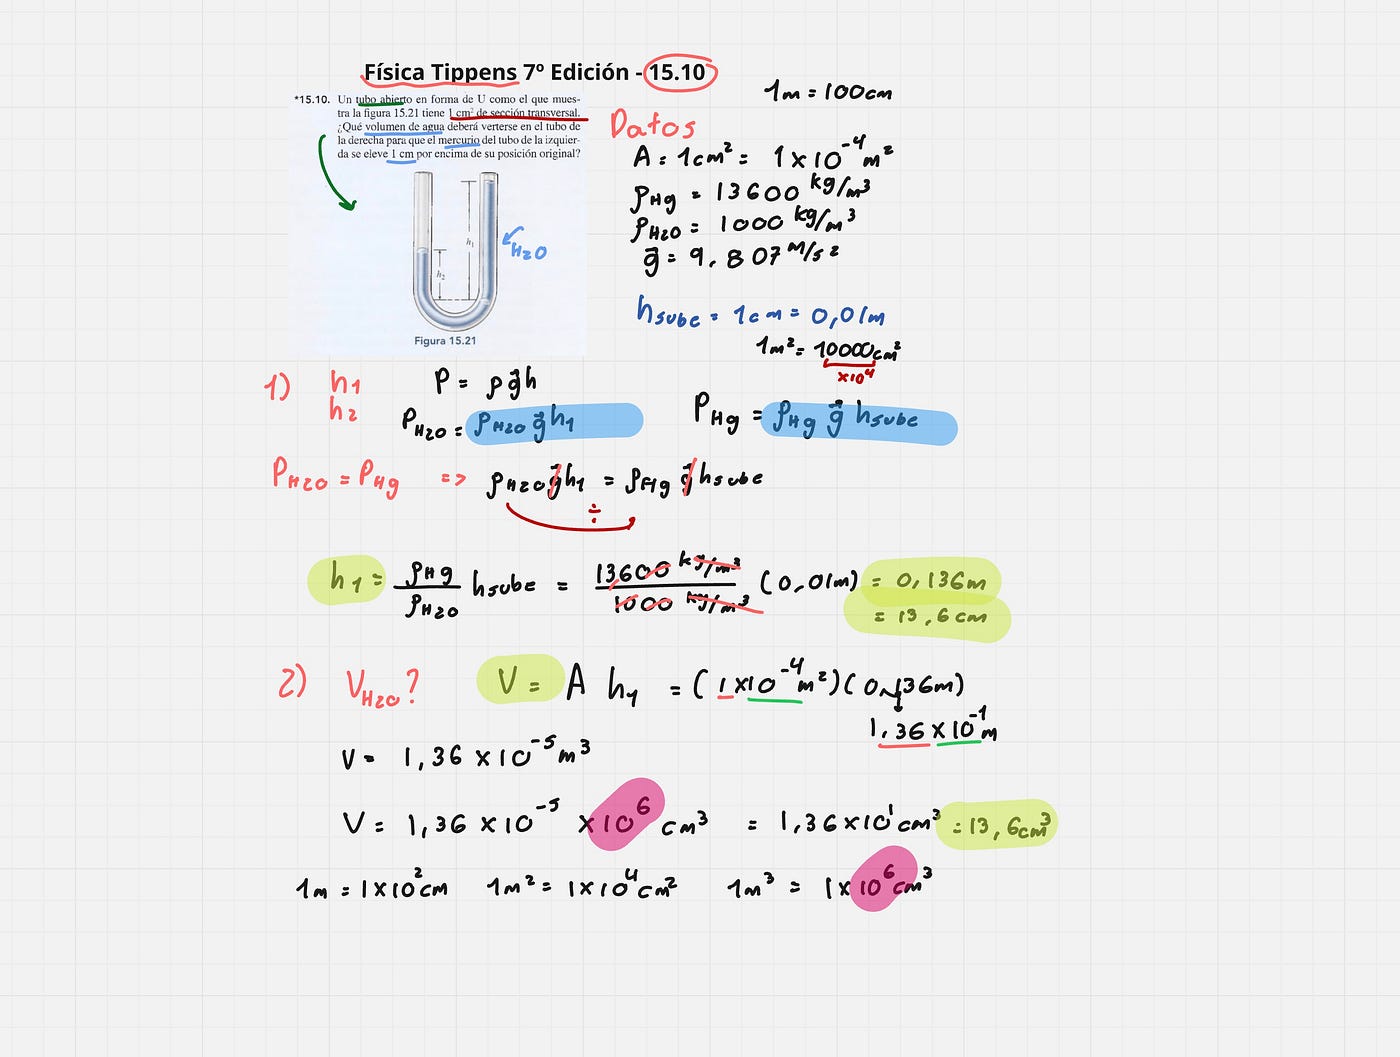 Física Tippens 7º Edición - 15.10
*15.10. Un tubo abierto en forma de U como el que mues-
tra la figura 15.21 tiene 1 cm² de sección transversal.
¿Qué volumen de agua deberá verterse en el tubo de
la derecha para que el mercurio del tubo de la izquier-
da se eleve 1 cm por encima de su posición original?
h₁
h₂
H₂O
Figura 15.21
1m = 100cm
Datos
A = 1cm² = 1x10⁻⁴m²
ρHg = 13600 kg/m³
ρH₂O = 1000 kg/m³
g⃗ = 9,807 m/s²
hsube = 1cm = 0,01m
1m² = 10000cm²
x10⁴
1) h₁
h₂
P = ρg⃗h
PH₂O = ρH₂O g⃗ h₁
PHg = ρHg g⃗ hsube
PH₂O = PHg => ρH₂O g⃗ h₁ = ρHg g⃗ hsube
÷
h₁ = ρHg/ρH₂O hsube = 13600 kg/m³ / 1000 kg/m³ (0,01m) = 0,136m
= 13,6cm
2) VH₂O? V = A h₁ = (1x10⁻⁴m²)(0,136m)
1,36x10⁻¹m
V = 1,36x10⁻⁵m³
V = 1,36x10⁻⁵ x10⁶ cm³ = 1,36x10¹cm³ = 13,6cm³
1m = 1x10²cm 1m² = 1x10⁴cm² 1m³ = 1x10⁶cm³